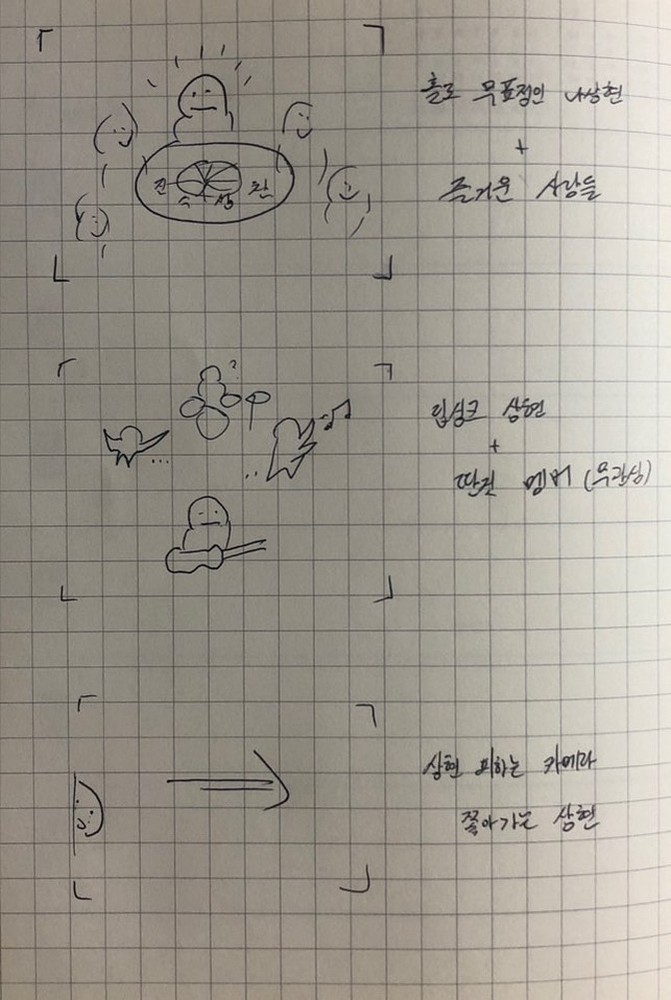 홀로 무표정인 나상현
+
즐거운 사람들
립싱크 상현
+
딴짓 멤버 (무관심)
상현 피하는 카메라
쫓아가는 상현